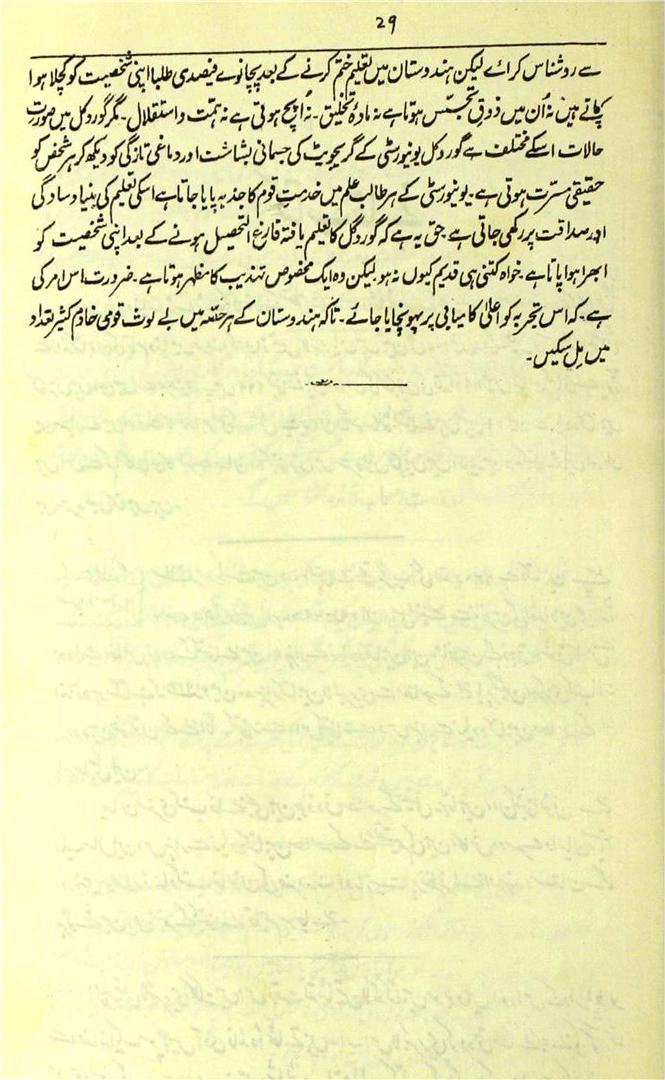 29
سے روشناس کرائے لیکن ہندوستان میں تعلیم ختم کرنے کے بعد پچانوے فیصدی طلبا اپنی شخصیت کو کچلا ہوا
پاتے ہیں نہ اُن میں ذوقِ تجسّس ہوتا ہے نہ مادۂ تخلیق۔ نہ اُپج ہوتی ہے نہ ہمت و استقلال۔ مگر گوروکل میں صورت
حالات اسکے مختلف ہے گوروکل یونیورسٹی کے گریجویٹ کی جسمانی بشاشت اور دماغی تازگی کو دیکھ کر ہر شخص کو
حقیقی مسرت ہوتی ہے۔ یونیورسٹی کے ہر طالب علم میں خدمتِ قوم کا جذبہ پایا جاتا ہے اسکی تعلیم کی بنیاد سادگی
اور صداقت پر رکھی جاتی ہے حق یہ ہے کہ گوروکل کا تعلیم یافتہ فارغ التحصیل ہونے کے بعد اپنی شخصیت کو
ابھرا ہوا پاتا ہے۔ خواہ کتنی ہی قدیم کیوں نہ ہو لیکن وہ ایک مخصوص تہذیب کا مظہر ہوتا ہے۔ ضرورت اس امر کی
ہے۔ کہ اس تجربہ کو اعلیٰ کامیابی پر پہونچایا جائے۔ تاکہ ہندوستان کے ہر حصّہ میں بے لوث قومی خادم کثیر تعداد
میں مِل سکیں۔